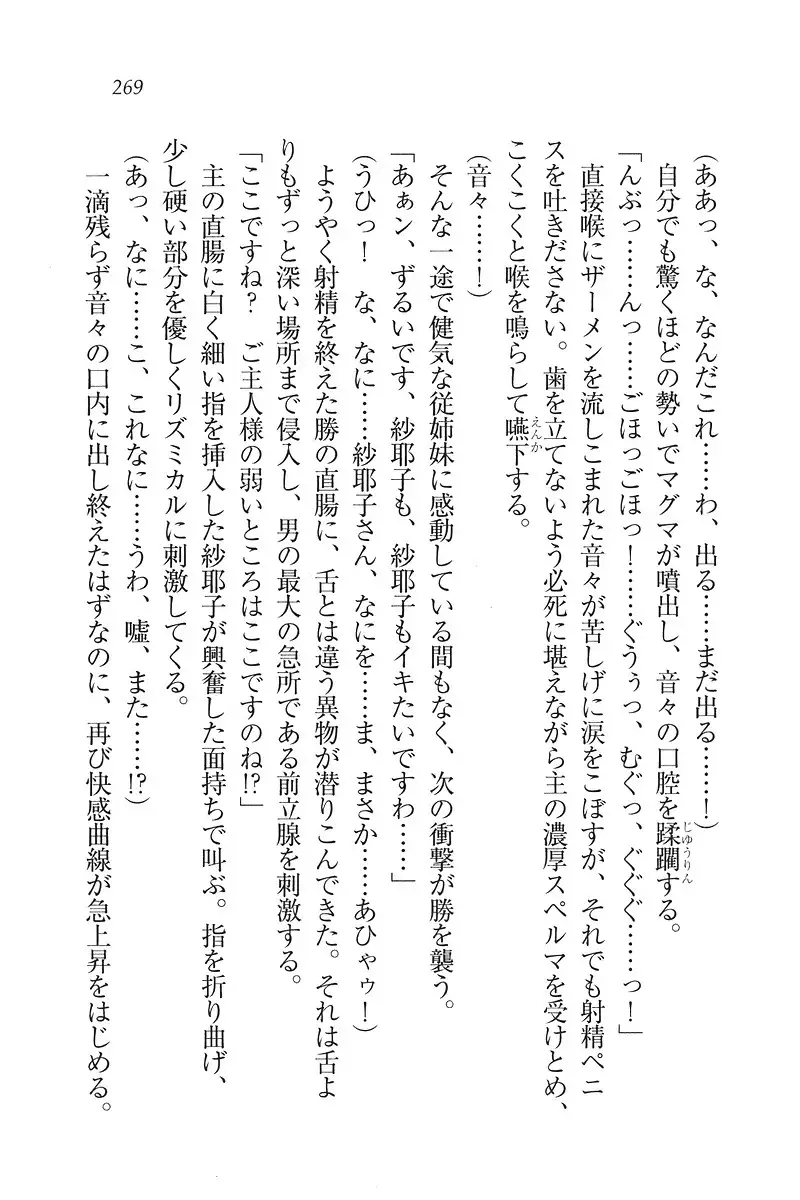 269
(ああっ、な、なんだこれ……わ、出る……まだ出る……！)
自分でも驚くほどの勢いでマグマが噴出し、音々の口腔を蹂躙する。
じゅうりん
「んぶっ……んっ……ごほっごほっ！……ぐうぅっ、むぐっ、ぐぐぐ……っ！」
直接喉にザーメンを流しこまれた音々が苦しげに涙をこぼすが、それでも射精ペニ
スを吐きださない。歯を立てないよう必死に堪えながら主の濃厚スペルマを受けとめ、
こくこくと喉を鳴らして嚥下する。
えんか
(音々……！)
そんな一途で健気な従姉妹に感動している間もなく、次の衝撃が勝を襲う。
「あぁン、ずるいです、紗耶子も、紗耶子もイキたいですわ……」
(うひっ！　な、なに……紗耶子さん、なにを……ま、まさか……あひゃゥ！)
ようやく射精を終えた勝の直腸に、舌とは違う異物が潜りこんできた。それは舌よ
りもずっと深い場所まで侵入し、男の最大の急所である前立腺を刺激する。
「ここですね？　ご主人様の弱いところはここですのね!?」
主の直腸に白く細い指を挿入した紗耶子が興奮した面持ちで叫ぶ。指を折り曲げ、
少し硬い部分を優しくリズミカルに刺激してくる。
(あっ、なに……こ、これなに……うわ、嘘、また……!?)
一滴残らず音々の口内に出し終えたはずなのに、再び快感曲線が急上昇をはじめる。